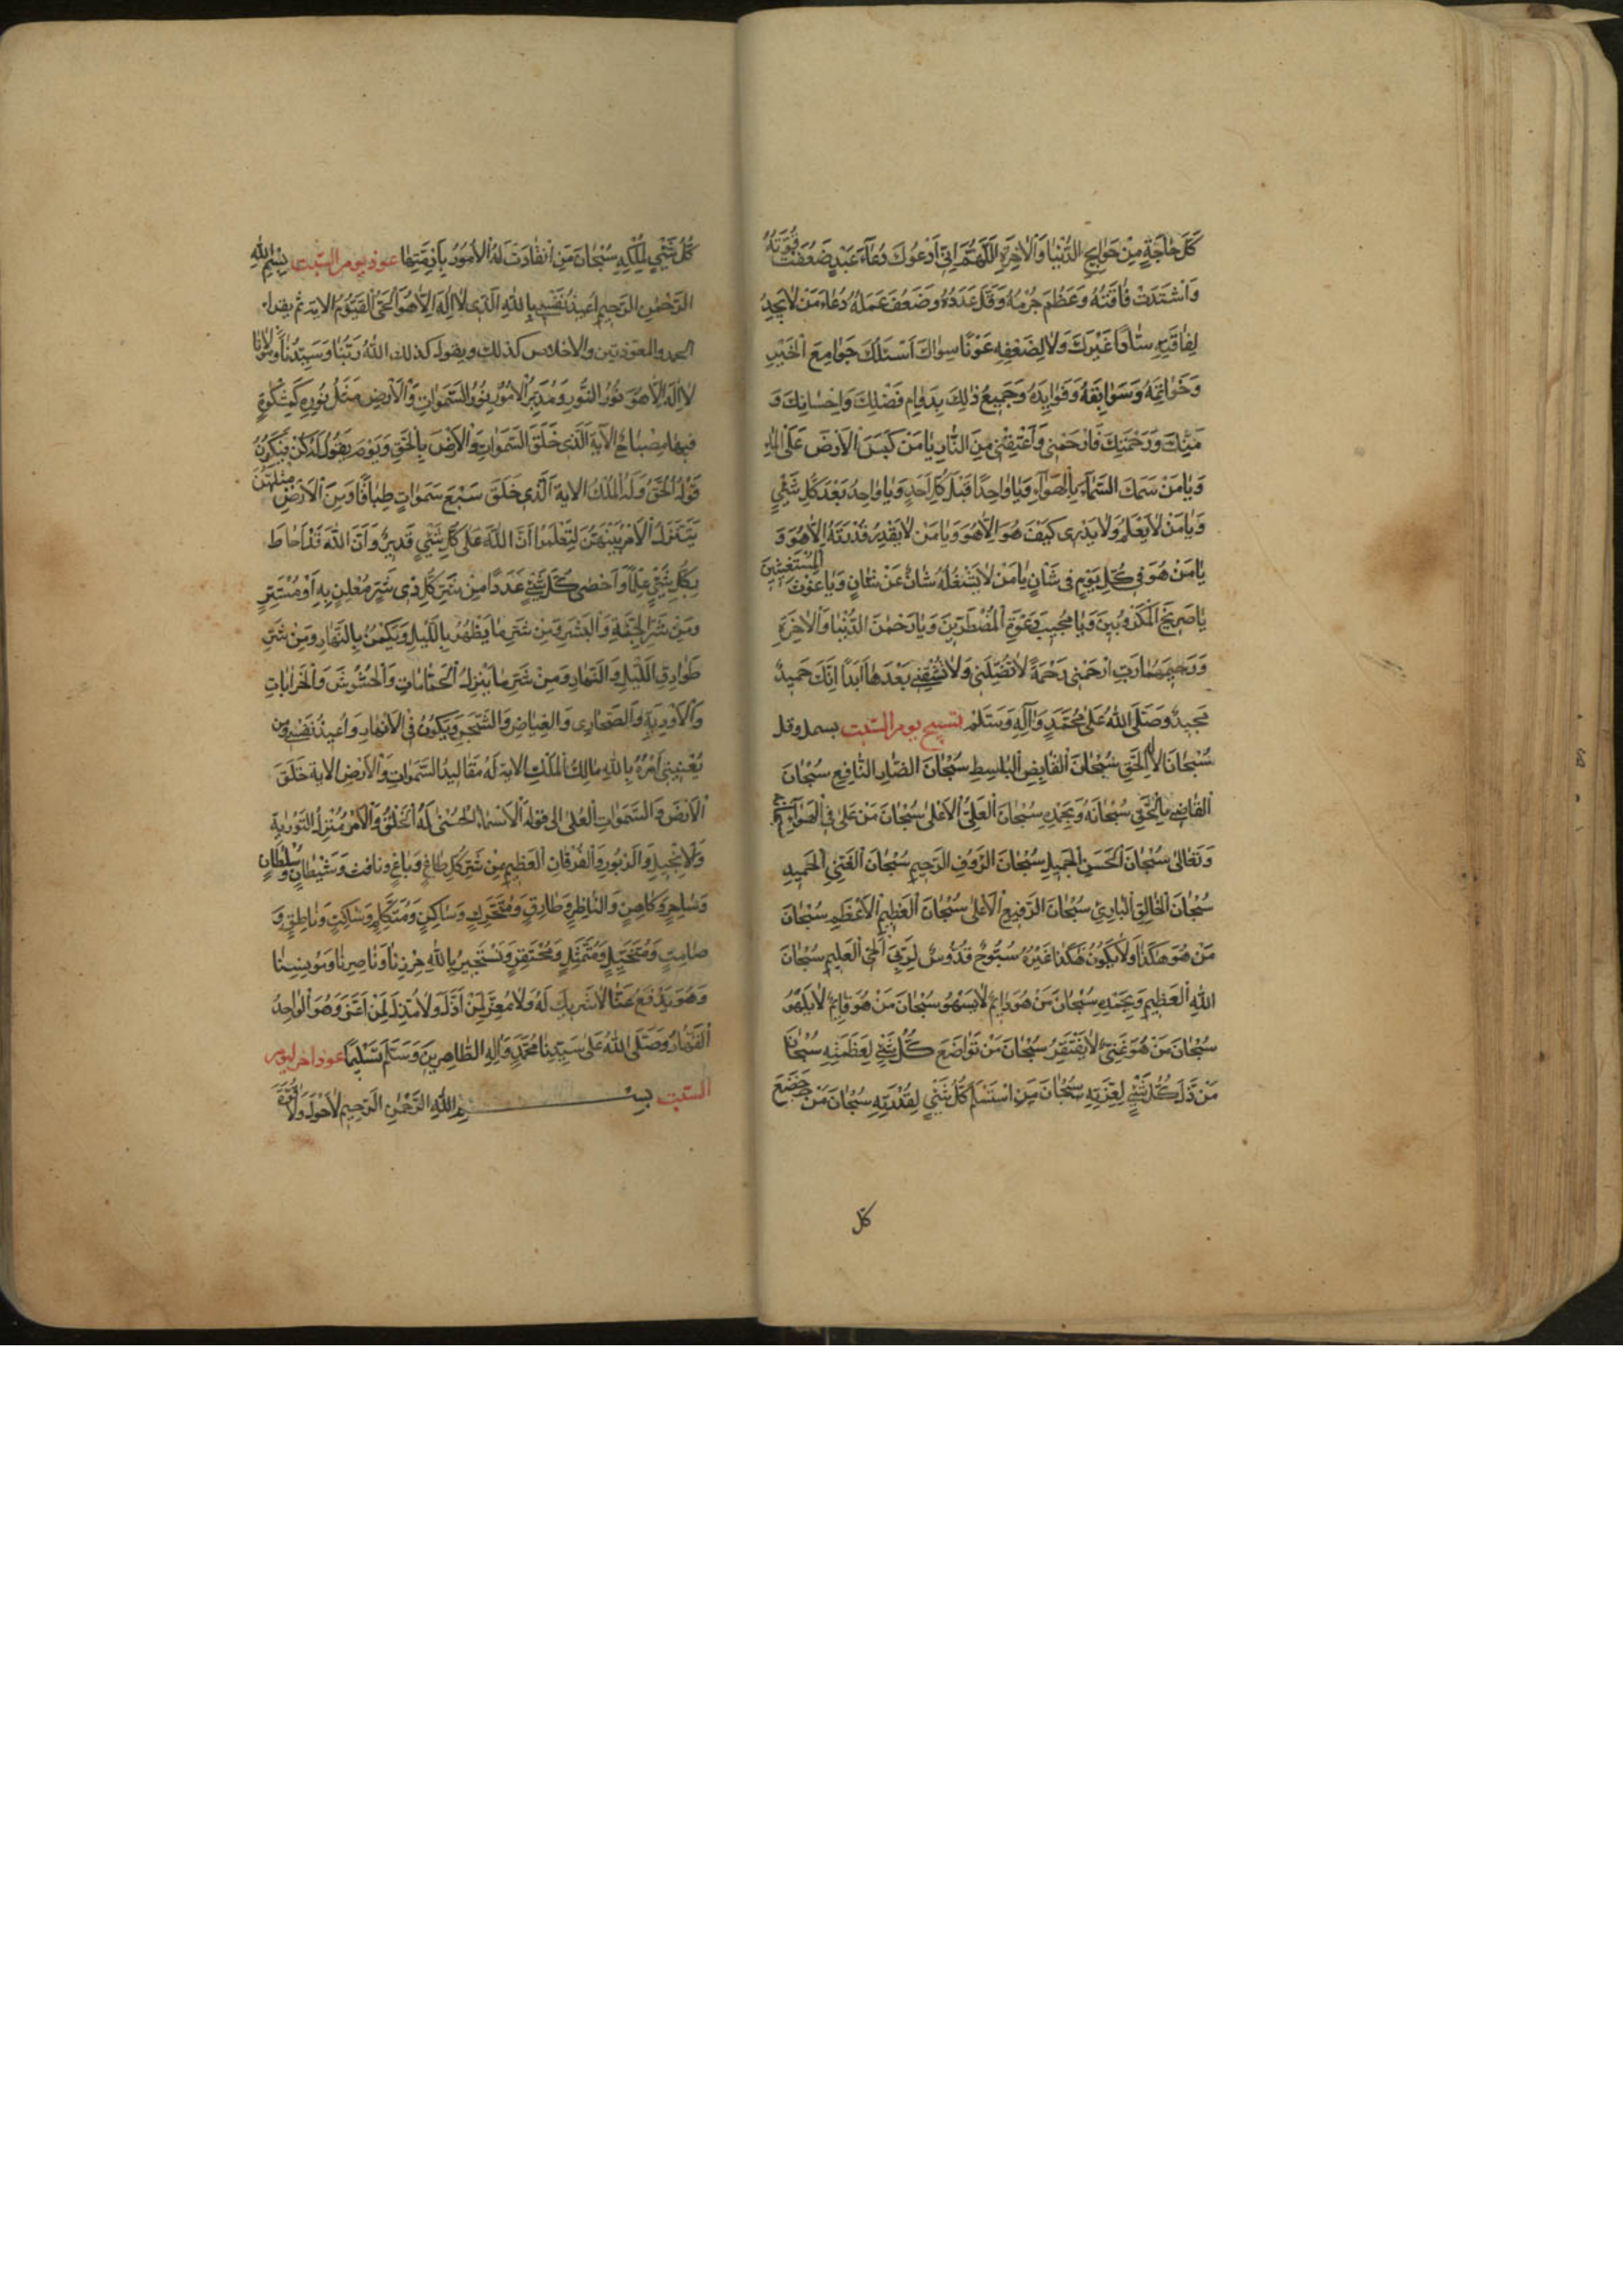 كُلَّ حَاجَةٍ مِنْ حَوَائِجِ الدُّنْيَا وَالْاٰخِرَةِ اَللّٰهُمَّ اِنّى اَدْعُوكَ دُعَاءَ عَبْدٍ ضَعُفَتْ قُوَّتُهُ
وَاشْتَدَّتْ فَاقَتُهُ وَعَظُمَ جُرْمُهُ وَقَلَّ عَدَدُهُ وَضَعُفَ عَمَلُهُ دُعَاءَ مَنْ لَا يَجِدُ
لِفَاقَتِهِ سَادًّا غَيْرَكَ وَلَا لِضَعْفِهِ عَوْنًا سِوَاكَ اَسْئَلُكَ جَوَامِعَ الْخَيْرِ
وَخَوَاتِمَهُ وَسَوَابِقَهُ وَفَوَائِدَهُ وَجَمِيعَ ذٰلِكَ بِدَوَامِ فَضْلِكَ وَاِحْسَانِكَ وَ
مَنِّكَ وَرَحْمَتِكَ فَارْحَمْنِى وَاَعْتِقْنِى مِنَ النَّارِ يَا مَنْ كَبَسَ الْاَرْضَ عَلَى الْمَاءِ
وَيَا مَنْ سَمَكَ السَّمَاءَ بِالْهَوَاءِ وَيَا وَاحِدًا قَبْلَ كُلِّ اَحَدٍ وَيَا وَاحِدُ بَعْدَ كُلِّ شَيْءٍ
وَيَا مَنْ لَا يَعْلَمُ وَلَا يَدْرِى كَيْفَ هُوَ اِلَّا هُوَ وَيَا مَنْ لَا يَقْدِرُ قُدْرَتَهُ اِلَّا هُوَ وَ
يَا مَنْ هُوَ فِى كُلِّ يَوْمٍ فِى شَاْنٍ يَا مَنْ لَا يَشْغَلُهُ شَاْنٌ عَنْ شَاْنٍ وَيَا غَوْثَ الْمُسْتَغِيثِينَ
يَا صَرِيخَ الْمَكْرُوبِينَ وَيَا مُجِيبَ دَعْوَةِ الْمُضْطَرِّينَ وَيَا رَحْمٰنَ الدُّنْيَا وَالْاٰخِرَةِ
وَرَحِيمَهُمَا رَبِّ ارْحَمْنِى رَحْمَةً لَا تُضِلَّنِى وَلَا تُشْقِنِى بَعْدَهَا اَبَدًا اِنَّكَ حَمِيدٌ
مَجِيدٌ وَصَلَّى اللّٰهُ عَلٰى مُحَمَّدٍ وَاٰلِهِ وَسَلَّمَ تسبيح يوم السبت بسمل وقل
سُبْحَانَ الْاِلٰهِ الْحَقِّ سُبْحَانَ الْقَابِضِ الْبَاسِطِ سُبْحَانَ الضَّارِّ النَّافِعِ سُبْحَانَ
الْقَاضِى بِالْحَقِّ سُبْحَانَهُ وَبِحَمْدِهِ سُبْحَانَ الْعَلِىِّ الْاَعْلٰى سُبْحَانَ مَنْ عَلٰى فِى الْهَوَاءِ
وَتَعَالٰى سُبْحَانَ الْحَسَنِ الْجَمِيلِ سُبْحَانَ الرَّؤُفِ الرَّحِيمِ سُبْحَانَ الْغَنِىِّ الْحَمِيدِ
سُبْحَانَ الْخَالِقِ الْبَارِئِ سُبْحَانَ الرَّفِيعِ الْاَعْلٰى سُبْحَانَ الْعَظِيمِ الْاَعْظَمِ سُبْحَانَ
مَنْ هُوَ هٰكَذَا وَلَا يَكُونُ هٰكَذَا غَيْرُهُ سُبُّوحٌ قُدُّوسٌ لِرَبِّىَ الْحَىِّ الْعَلِيمِ سُبْحَانَ
اللّٰهِ الْعَظِيمِ وَبِحَمْدِهِ سُبْحَانَ مَنْ هُوَ دَائِمٌ لَا يَسْهُو سُبْحَانَ مَنْ هُوَ قَائِمٌ لَا يَلْهُو
سُبْحَانَ مَنْ هُوَ غَنِىٌّ لَا يَفْتَقِرُ سُبْحَانَ مَنْ تَوَاضَعَ كُلُّ شَيْءٍ لِعَظَمَتِهِ سُبْحَانَ
مَنْ ذَلَّ كُلُّ شَيْءٍ لِعِزَّتِهِ سُبْحَانَ مَنِ اسْتَسْلَمَ كُلُّ شَيْءٍ لِقُدْرَتِهِ سُبْحَانَ مَنْ خَضَعَ
كلّ
كُلُّ شَيْءٍ لِمُلْكِهِ سُبْحَانَ مَنِ انْقَادَتْ لَهُ الْاُمُورُ بِاَزِمَّتِهَا عوذ يوم السبت بِسْمِ اللّٰهِ
الرَّحْمٰنِ الرَّحِيمِ اُعِيذُ نَفْسِى بِاللّٰهِ الَّذِى لَا اِلٰهَ اِلَّا هُوَ الْحَىُّ الْقَيُّومُ الاية ثم يقرا
الحمد والمعوذتين والاخلاص كذلك ويقول كذلك اللّٰهُ رَبُّنَا وَسَيِّدُنَا وَمَوْلَانَا
لَا اِلٰهَ اِلَّا هُوَ نُورُ النُّورِ وَمُدَبِّرُ الْاُمُورِ نُورُ السَّمٰوَاتِ وَالْاَرْضِ مَثَلُ نُورِهِ كَمِشْكٰوةٍ
فِيهَا مِصْبَاحٌ الْاٰيَةَ الَّذِى خَلَقَ السَّمٰوَاتِ وَالْاَرْضَ بِالْحَقِّ وَيَوْمَ يَقُولُ لَهُ كُنْ فَيَكُونُ
قَوْلُهُ الْحَقُّ وَلَهُ الْمُلْكُ الاية الَّذِى خَلَقَ سَبْعَ سَمٰوَاتٍ طِبَاقًا وَمِنَ الْاَرْضِ مِثْلَهُنَّ
يَتَنَزَّلُ الْاَمْرُ بَيْنَهُنَّ لِتَعْلَمُوا اَنَّ اللّٰهَ عَلٰى كُلِّ شَيْءٍ قَدِيرٌ وَاَنَّ اللّٰهَ قَدْ اَحَاطَ
بِكُلِّ شَيْءٍ عِلْمًا وَاَحْصٰى كُلَّ شَيْءٍ عَدَدًا مِنْ شَرِّ كُلِّ ذِى شَرٍّ مُعْلِنٍ بِهِ اَوْ مُسْتَتِرٍ
وَمِنْ شَرِّ الْجِنَّةِ وَالْبَشَرِ وَمِنْ شَرِّ مَا يَظْهَرُ بِاللَّيْلِ وَيَكْمُنُ بِالنَّهَارِ وَمِنْ شَرِّ
طَوَارِقِ اللَّيْلِ وَالنَّهَارِ وَمِنْ شَرِّ مَا يَنْزِلُ الْحَمَّامَاتِ وَالْحُشُوشَ وَالْخَرَابَاتِ
وَالْاَوْدِيَةَ وَالصَّحَارِى وَالْغِيَاضَ وَالشَّجَرَ وَيَكُونُ فِى الْاَنْهَارِ وَاُعِيذُ نَفْسِى وَمَنْ
يَعْنِينِى اَمْرُهُ بِاللّٰهِ مَالِكَ الْمُلْكِ الاية لَهُ مَقَالِيدُ السَّمٰوَاتِ وَالْاَرْضِ الاية خَلَقَ
الْاَرْضَ وَالسَّمٰوَاتِ الْعُلٰى الى قوله الْاَسْمَاءُ الْحُسْنٰى لَهُ الْخَلْقُ وَالْاَمْرُ مُنْزِلُ التَّوْرٰيةِ
وَالْاِنْجِيلِ وَالزَّبُورِ وَالْفُرْقَانِ الْعَظِيمِ مِنْ شَرِّ كُلِّ طَاغٍ وَبَاغٍ ونافث وَشَيْطَانٍ وَسُلْطَانٍ
وَسَاحِرٍ وَكَاهِنٍ وَالنَّاظِرِ وَطَارِقٍ وَمُتَحَرِّكٍ وَسَاكِنٍ وَمُتَكَلِّمٍ وَسَاكِتٍ وَنَاطِقٍ وَ
صَامِتٍ وَمُتَخَيِّلٍ وَمُتَمَثِّلٍ وَمُحْتَقِرٍ وَنَسْتَجِيرُ بِاللّٰهِ حِرْزِنَا وَنَاصِرِنَا وَمُونِسِنَا
وَهُوَ يَدْفَعُ عَنَّا لَا شَرِيكَ لَهُ وَلَا مُعِزَّ لِمَنْ اَذَلَّ وَلَا مُذِلَّ لِمَنْ اَعَزَّ وَهُوَ الْوَاحِدُ
الْقَهَّارُ وَصَلَّى اللّٰهُ عَلٰى سَيِّدِنَا مُحَمَّدٍ وَاٰلِهِ الطَّاهِرِينَ وَسَلَّمَ تَسْلِيمًا عوذ اخر ليوم
السبت بِسْمِ اللّٰهِ الرَّحْمٰنِ الرَّحِيمِ لَا حَوْلَ وَلَا قُوَّةَ